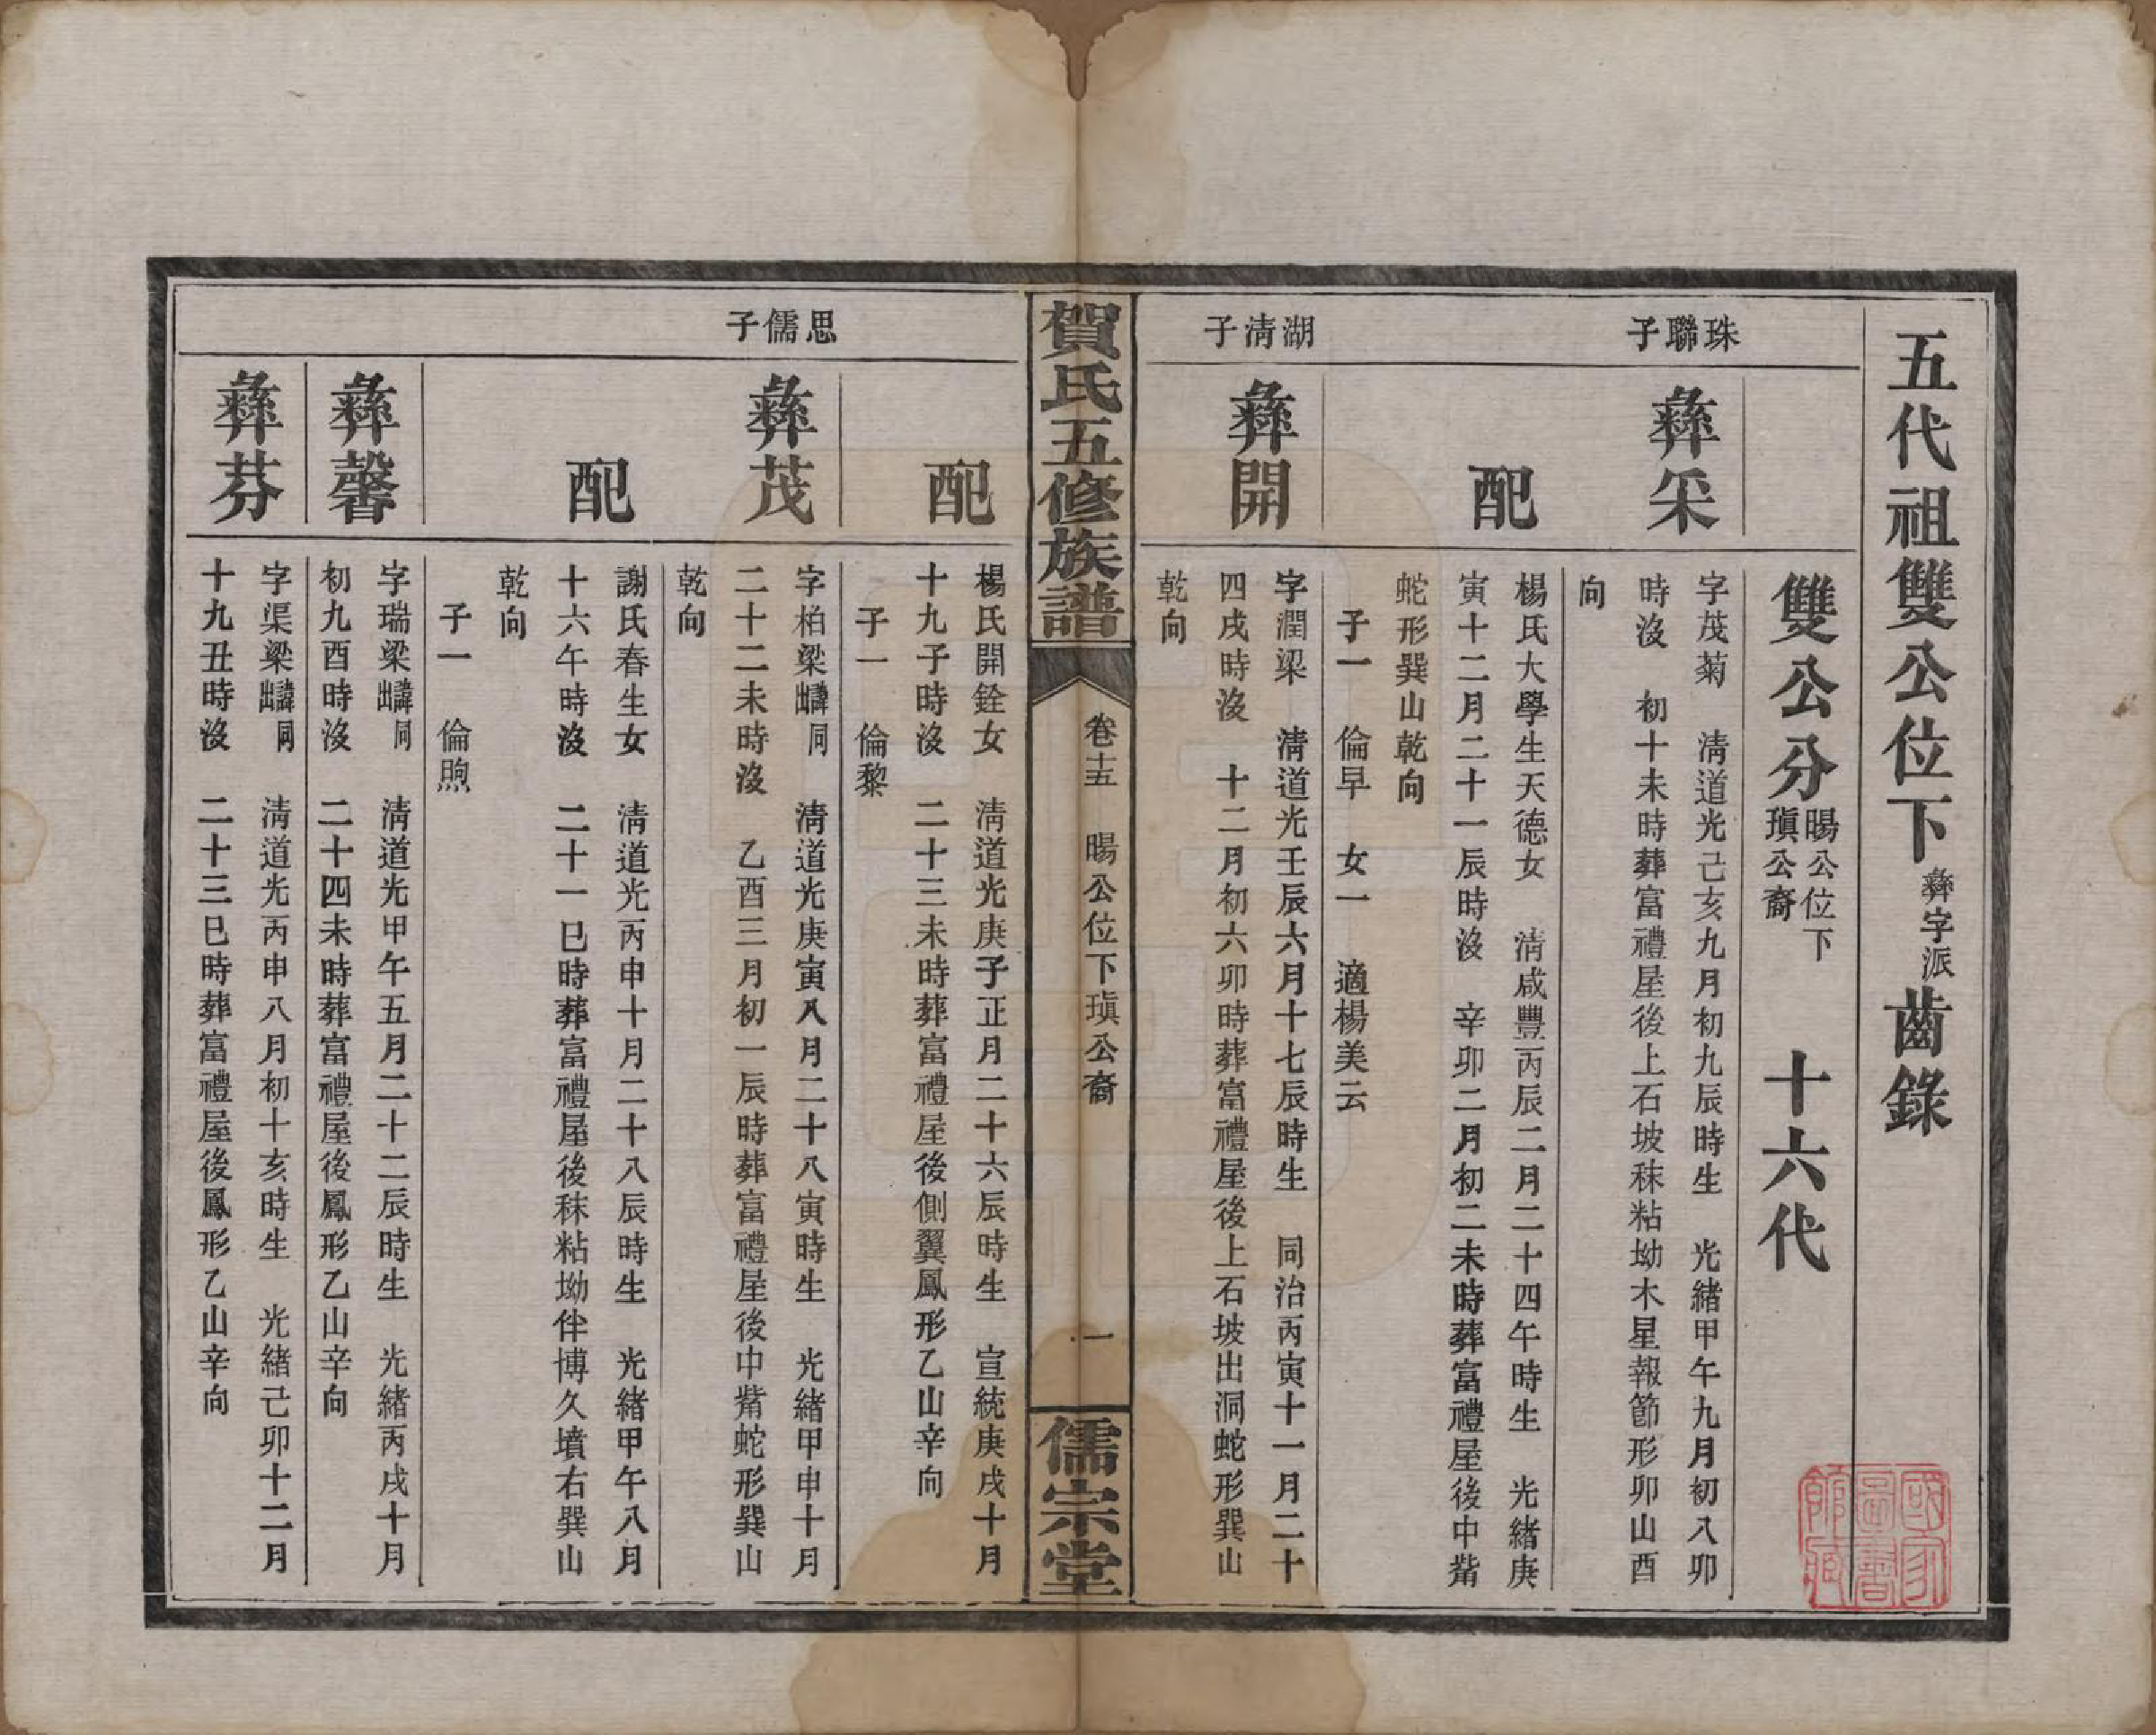 五代祖雙公位下彝字派齒錄
雙公分 暘公位下 瑱公裔 十六代
珠聯子
彝采
字茂菊 清道光己亥九月初九辰時生 光緒甲午九月初八卯
時沒 初十未時葬富禮屋後上石坡秣粘坳木星報節形卯山酉
向
配
楊氏大學生天德女 清咸豐丙辰二月二十四午時生 光緒庚
寅十二月二十一辰時沒 辛卯二月初二未時葬富禮屋後中觜
蛇形巽山乾向
子一 倫早 女一 適楊美云
湖清子
彝開
字潤梁 清道光壬辰六月十七辰時生 同治丙寅十一月二十
四戌時沒 十二月初六卯時葬富禮屋後上石坡出洞蛇形巽山
乾向
賀氏五修族譜
卷十五 暘公位下瑱公裔 一
儒宗堂
配
楊氏開銓女 清道光庚子正月二十六辰時生 宣統庚戌十月
十九子時沒 二十三未時葬富禮屋後側翼鳳形乙山辛向
子一 倫黎
思儒子
彝茂
字柏梁出譁同 清道光庚寅八月二十八寅時生 光緒甲申十月
二十二未時沒 乙酉三月初一辰時葬富禮屋後中觜蛇形巽山
乾向
配
謝氏春生女 清道光丙申十月二十八辰時生 光緒甲午八月
十六午時沒 二十一巳時葬富禮屋後秣粘坳伴博久墳右巽山
乾向
子一 倫煦
彝馨
字瑞梁出譁同 清道光甲午五月二十二辰時生 光緒丙戌十月
初九酉時沒 二十四未時葬富禮屋後鳳形乙山辛向
彝芬
字渠梁出譁同 清道光丙申八月初十亥時生 光緒己卯十二月
十九丑時沒 二十三巳時葬富禮屋後鳳形乙山辛向
國家圖書館藏